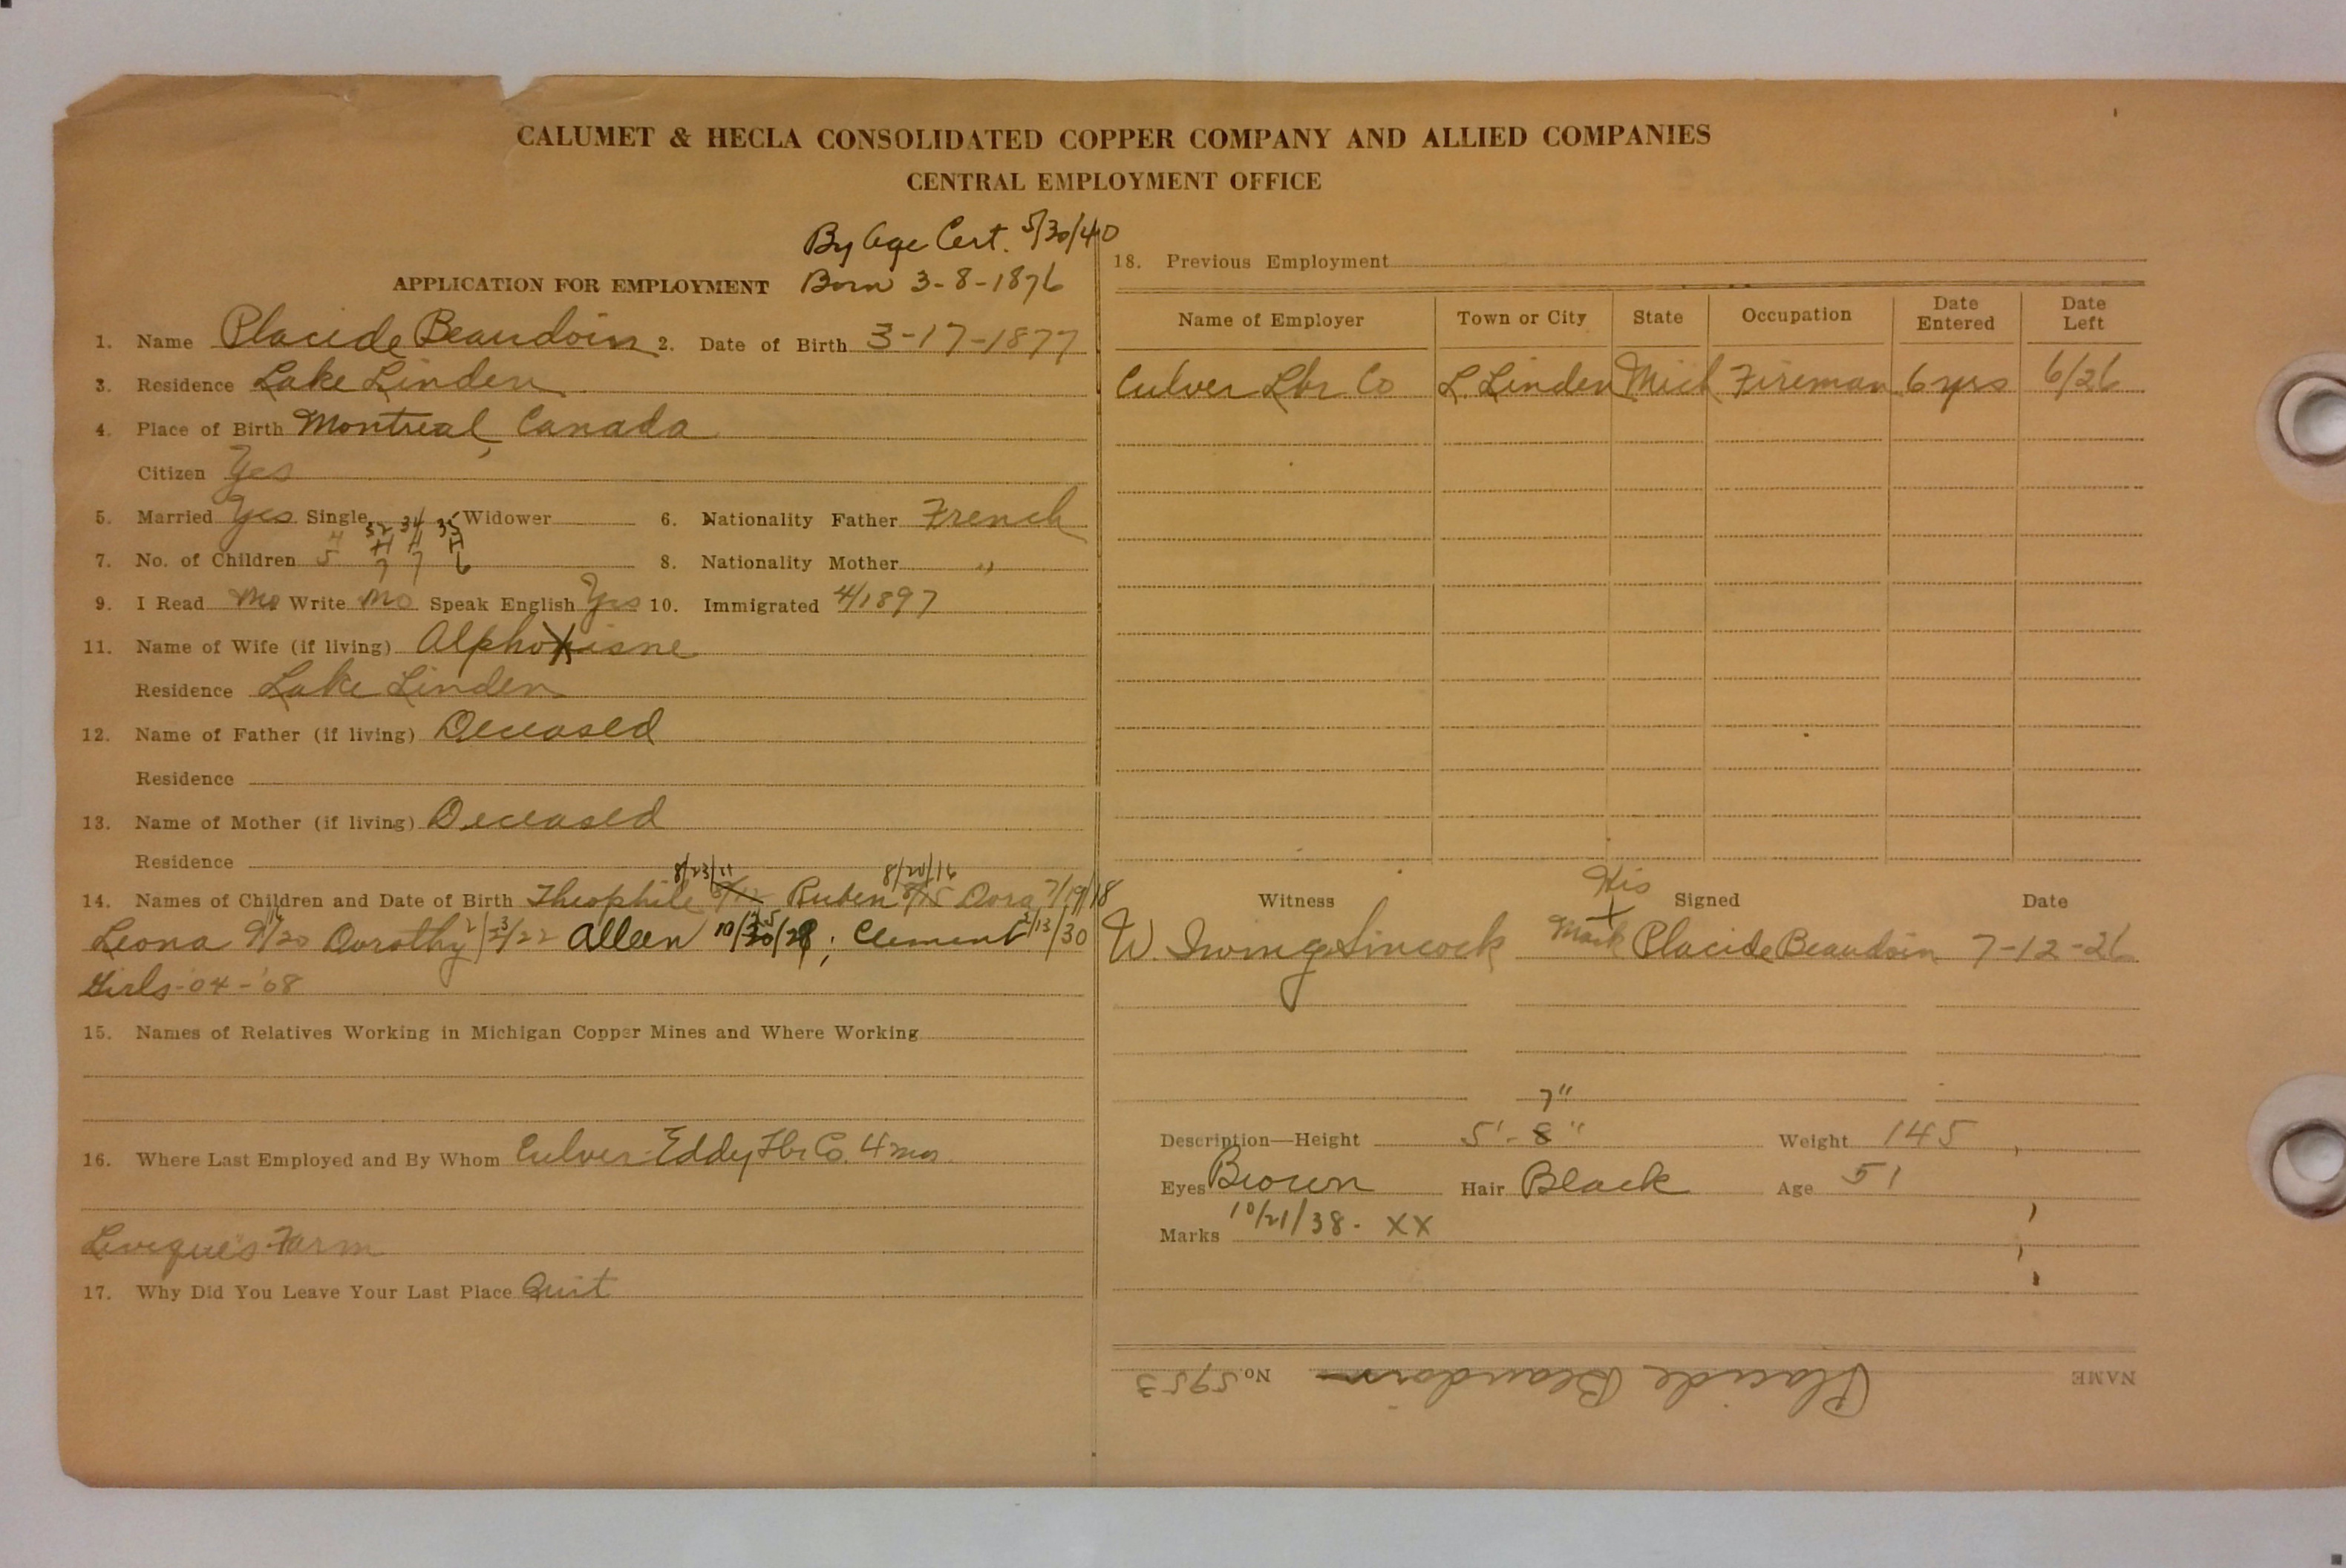 CALUMET & HECLA CONSOLIDATED COPPER COMPANY AND ALLIED COMPANIES
CENTRAL EMPLOYMENT OFFICE
By Age Cert. 5/30/40
APPLICATION FOR EMPLOYMENT Born 3-8-1876
1. Name Placide Beaudoin 2. Date of Birth 3-17-1877
3. Residence Lake Linden
4. Place of Birth Montreal, Canada
Citizen Yes
5. Married Yes Single Widower 6. Nationality Father French
32 34 35
4 H H H
7. No. of Children 5 7 7 6 8. Nationality Mother "
9. I Read No Write No Speak English Yes 10. Immigrated 4/1897
11. Name of Wife (if living) Alphonisne
Residence Lake Linden
12. Name of Father (if living) Deceased
Residence
13. Name of Mother (if living) Deceased
Residence
8/23/11 8/20/16
14. Names of Children and Date of Birth Theophile Ruben Dora 7/19/18
Leona 9/20 Dorothy 2/22 Alleen 10/28; Clement 2/13/30
Girls-04-'08
15. Names of Relatives Working in Michigan Copper Mines and Where Working
16. Where Last Employed and By Whom Culver-Eddy Lbr Co. 4 mos.
Leveque's Farm
17. Why Did You Leave Your Last Place Quit
18. Previous Employment
Name of Employer Town or City State Occupation Date Entered Date Left
Culver Lbr Co L. Linden Mich Fireman 6 yrs 6/26
His
Witness Signed Date
X
W. Irving Sincock Mark Placide Beaudoin 7-12-26
7"
Description—Height 5'-8" Weight 145
Eyes Brown Hair Black Age 51
Marks 10/21/38- XX
NAME Placide Beaudoin No. 5953